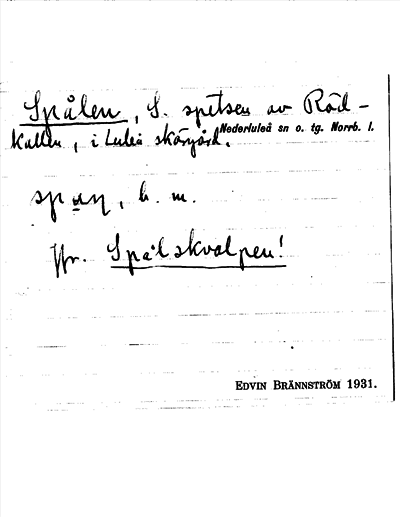 Spålen, S. spetsen av Röd-
kallen, i Luleå skärgård. Nederluleå sn o. tg. Norrb. l.
b. m.
Jfr. Spålskvalpen!
EDVIN BRÄNNSTRÖM 1931.